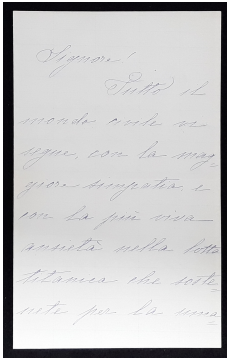 Signore!
Tutto il
mondo civile vi
segue, con la mag
giore simpatia e
con la più viva
ansietà nella lotta
titanica che soste-
nete per la uma